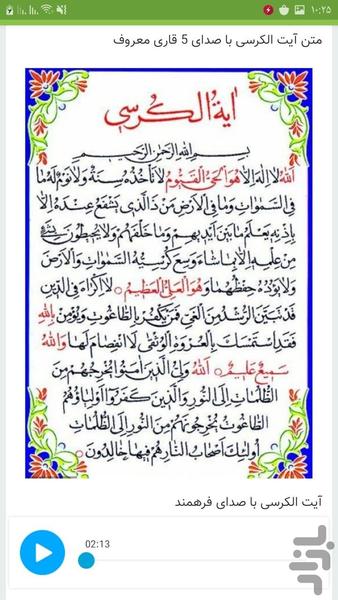 ۱۰:۲۵
متن آیت الکرسی با صدای 5 قاری معروف
اية الكرسي
بسم الله الرحمن الرحيم
اَللهُ لا اِلهَ اِلاّ هُوَ الحَىُّ القَيُّومُ لا تَأخُذُهُ سِنَةٌ وَلا نَومٌ لَهُ ما
فِى السَّمواتِ وَما فِى الاَرضِ مَن ذَا الَّذى يَشفَعُ عِندَهُ اِلاّ
بِاِذنِهِ يَعلَمُ ما بَينَ اَيديهِم وَما خَلفَهُم وَلا يُحيطُونَ بِشَىءٍ
مِن عِلمِهِ اِلاّ بِماشاءَ وَسِعَ كُرسِيُّهُ السَّمواتِ وَالاَرضَ
وَلا يَؤُدُهُ حِفظُهُما وَهُوَ العَلِىُّ العَظيمُ لا اِكراهَ فِى الدّينِ
قَد تَبَيَّنَ الرُّشدُ مِنَ الغَىِّ فَمَن يَكفُر بِالطّاغُوتِ وَيُؤمِن بِاللهِ
فَقَدِ استَمسَكَ بِالعُروَةِ الوُثقى لاَ انفِصامَ لَها وَاللهُ
سَميعٌ عَليمٌ اَللهُ وَلِىُّ الَّذينَ امَنُوا يُخرِجُهُم مِنَ
الظُّلُماتِ اِلَى النُّورِ وَالَّذينَ كَفَرُوا اَولِياؤُهُمُ
الطّاغُوتُ يُخرِجُونَهُم مِنَ النُّورِ اِلَى الظُّلُماتِ
اُولئِكَ اَصحابُ النّارِ هُم فيها خالِدُونَ
آیت الکرسی با صدای فرهمند
02:13
بازار